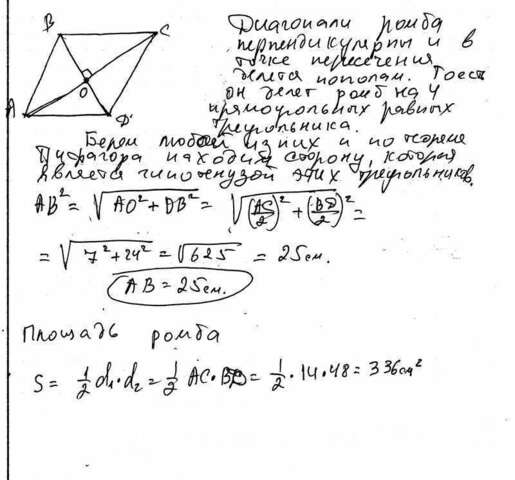 B C
Диагонали ромба
перпендикулярны и в
точке пересечения
делятся пополам. Тоесть
O
он делет ромб на 4
A
прямоугольных равных
D
треугольника.
Берем любой из них и по теореме
Пифагора находим сторону, которая
является гипотенузой этих треугольников.
AB² = √(AO² + OB²) = √((AC/2)² + (BD/2)²) =
= √(7² + 24²) = √625 = 25 см.
AB = 25 см.
Площадь ромба
S = 1/2 d₁·d₂ = 1/2 AC·BD = 1/2·14·48 = 336 см²